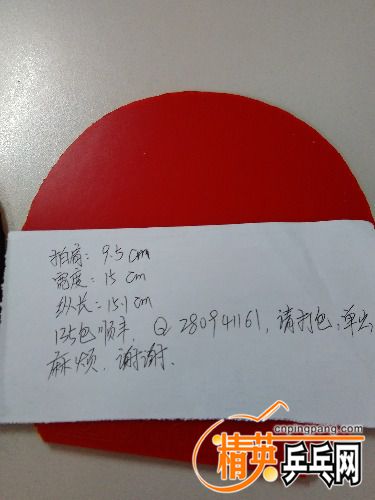 拍肩: 9.5 cm
宽度: 15 cm
纵长: 15.1 cm
135包顺丰. Q 280941161, 请打包, 单出
麻烦. 谢谢.
cnpingpang.com
精英乒乓网